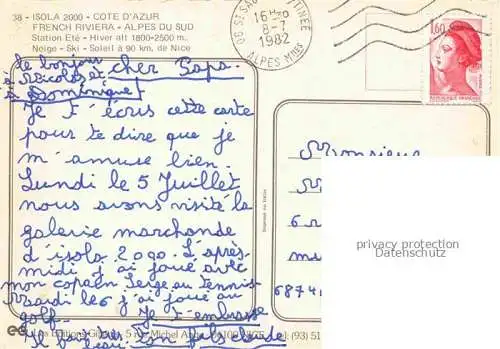 38 - ISOLA 2000 - COTE D'AZUR
FRENCH RIVIERA - ALPES DU SUD
Station Eté - Hiver alt 1800-2500 m.
Neige - Ski - Soleil à 90 km. de Nice
16 H
8-7
1982
ALPES MMES
1,60
le bonjour
à Nicolas et
à Dominique!
cher Papa
Je t'écris cette carte
pour te dire que je
m'amuse bien.
Lundi le 5 Juillet
nous avons visité la
galerie marchande
d'isola 2000. L'après-
midi j'ai joué avec
mon copain Serge au tennis
Mardi le 6 j'ai joué au
golf. Je t'embrasse
Il fait beau Ton fils claude
Monsieur
6 r
68740
privacy protection
Datenschutz
Les Editions
Tel : (93) 51